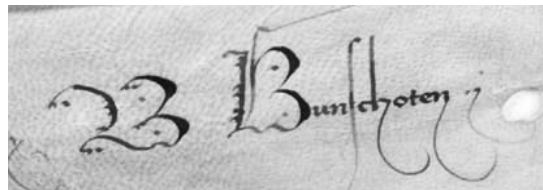 B Bunschoten